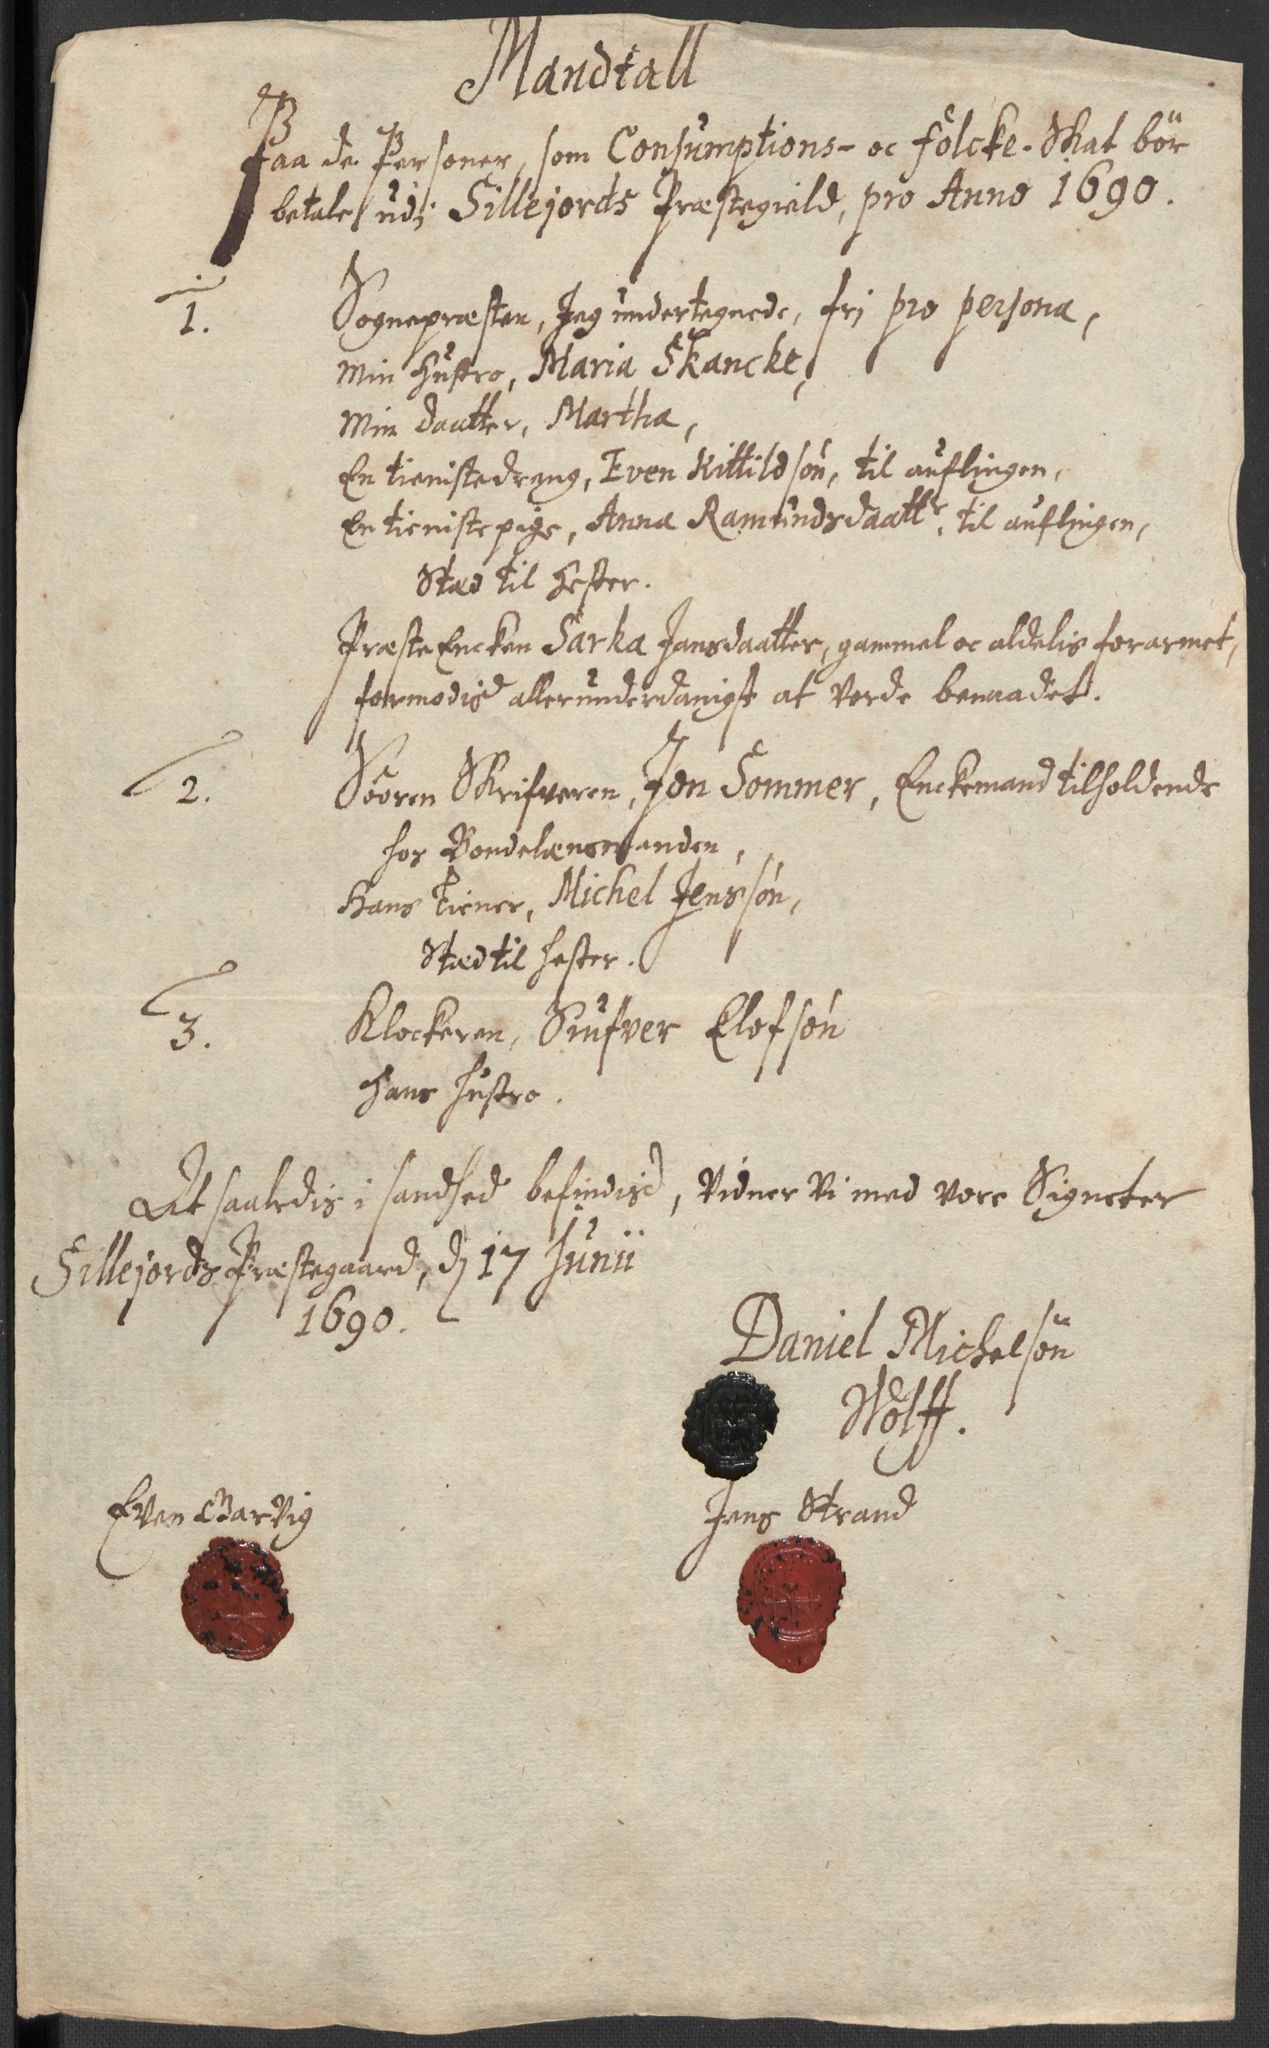 Mandtall
Paa de Personer, som Consumptions- oc folcke-Skat bör
betale udj Sillejords Præstegield, pro Anno 1690.
1. Sognepræsten, Jeg undertegnede, frj pro persona,
Min Hustro, Maria Skancke,
Min Daatter, Martha,
En tienistedreng, Even Kittildsøn, til auflingen,
En tienistepige, Anna Ramundsdaattr, til auflingen,
Stæd til Hester.
Præste Encken Sarka Jansdaatter, gammel oc aldelis forarmet,
formodis allerunderdanigst at vorde benaadet.
2. Sooren Skrifveren, Jon Sommer, Enckemand tilholdende
hos Bondelænsmanden,
Hans Tiener, Michel Jenssøn,
Stæd til hester.
3. Klockeren, Siufver Elofsøn
Hans Hustro.
At saaledis i sandhed befindis, Vidner Vi med vore Signeter
Sillejords Præstegaard, dj 17 Junii
1690.
Daniel Michelsön
Wolff.
Even Barvig
Jens Strand